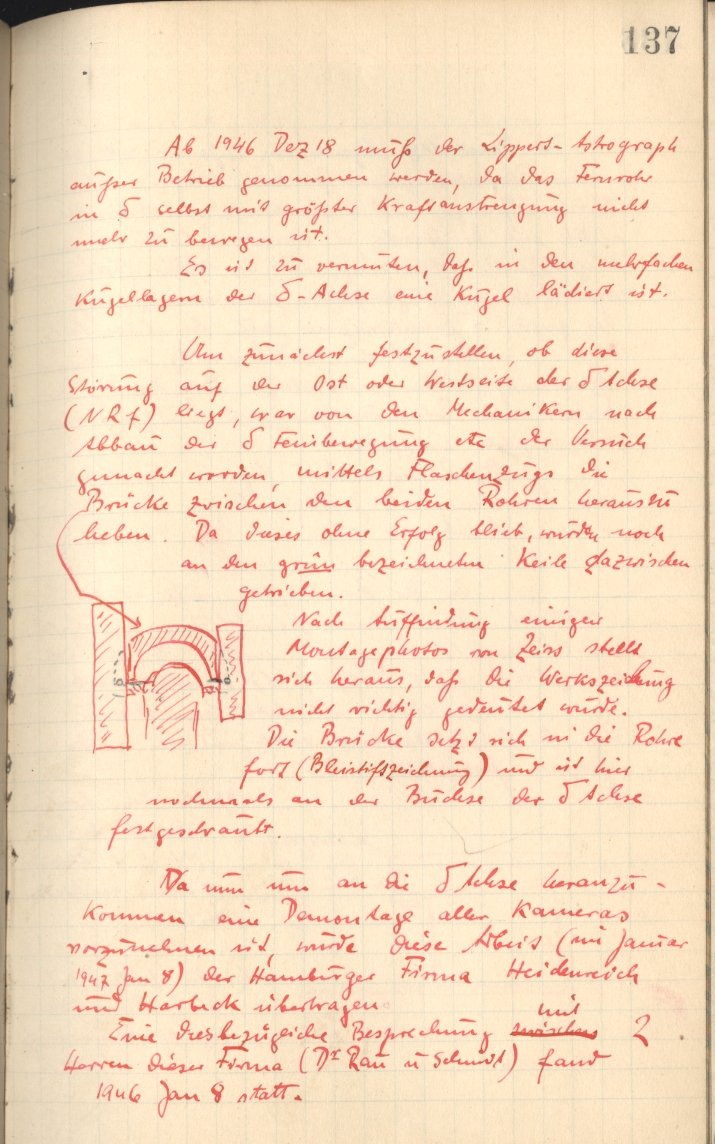 137
Ab 1946 Dez 18 muß der Lippert-Astrograph
außer Betrieb genommen werden, da das Fernrohr
in δ selbst mit größter Kraftanstrengung nicht
mehr zu bewegen ist.
Es ist zu vermuten, daß in den mehrfachen
Kugellagern der δ-Achse eine Kugel lädiert ist.
Um zunächst festzustellen, ob diese
Störung auf der Ost oder Westseite der δ Achse
(NRf) liegt, war von den Mechanikern nach
Abbau der δ Feinbewegung etc der Versuch
gemacht worden, mittels Flaschenzugs die
Brücke zwischen den beiden Rohren herauszu
heben. Da dieses ohne Erfolg blieb, wurden noch
an den grün bezeichneten Keile dazwischen
getrieben.
Nach Auffindung einiger
Montagephotos von Zeiss stellt
sich heraus, daß die Werkszeichnung
nicht richtig gedeutet wurde.
Die Brücke setzt sich in die Rohre
fort (Bleistiftzeichnung) und ist hier
nochmals an der Buchse der δ Achse
festgeschraubt.
Da nun um an die δ Achse heranzu-
kommen eine Demontage aller Kameras
vorzunehmen ist, wurde diese Arbeit (im Januar
1947 Jan 8) der Hamburger Firma Heidenreich
und Harbeck übertragen
Eine diesbezügliche Besprechung zwischen mit 2
Herren dieser Firma (Dr Rau u Schmidt) fand
1946 Jan 8 statt.